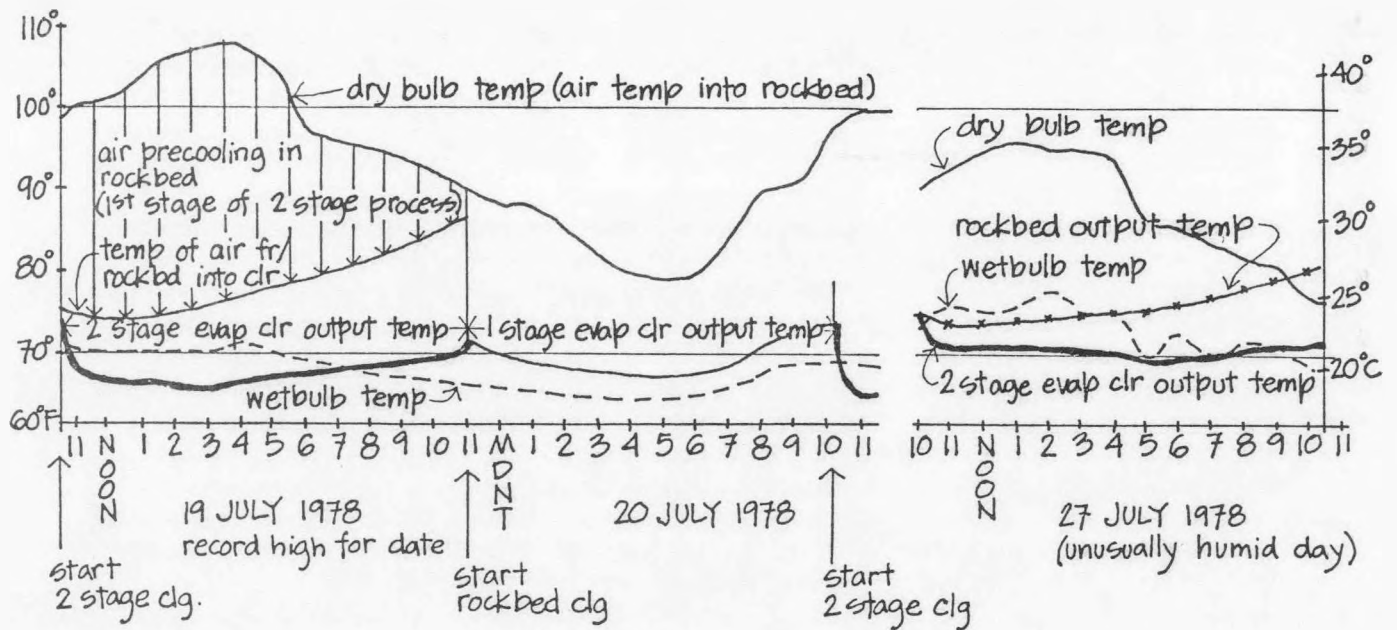 110°
100°
90°
80°
70°
60°F
dry bulb temp (air temp into rockbed)
air precooling in
rockbed
(1st stage of 2 stage process)
temp of air fr/
rockbd into clr
2 stage evap clr output temp
1 stage evap clr output temp
wetbulb temp
11 NOON 1 2 3 4 5 6 7 8 9 10 11 MDNT 1 2 3 4 5 6 7 8 9 10 11
19 JULY 1978
record high for date
20 JULY 1978
start
2 stage clg.
start
rockbed clg
start
2 stage clg
40°
35°
30°
25°
20°C
dry bulb temp
rockbed output temp
wetbulb temp
2 stage evap clr output temp
10 11 NOON 1 2 3 4 5 6 7 8 9 10 11
27 JULY 1978
(unusually humid day)